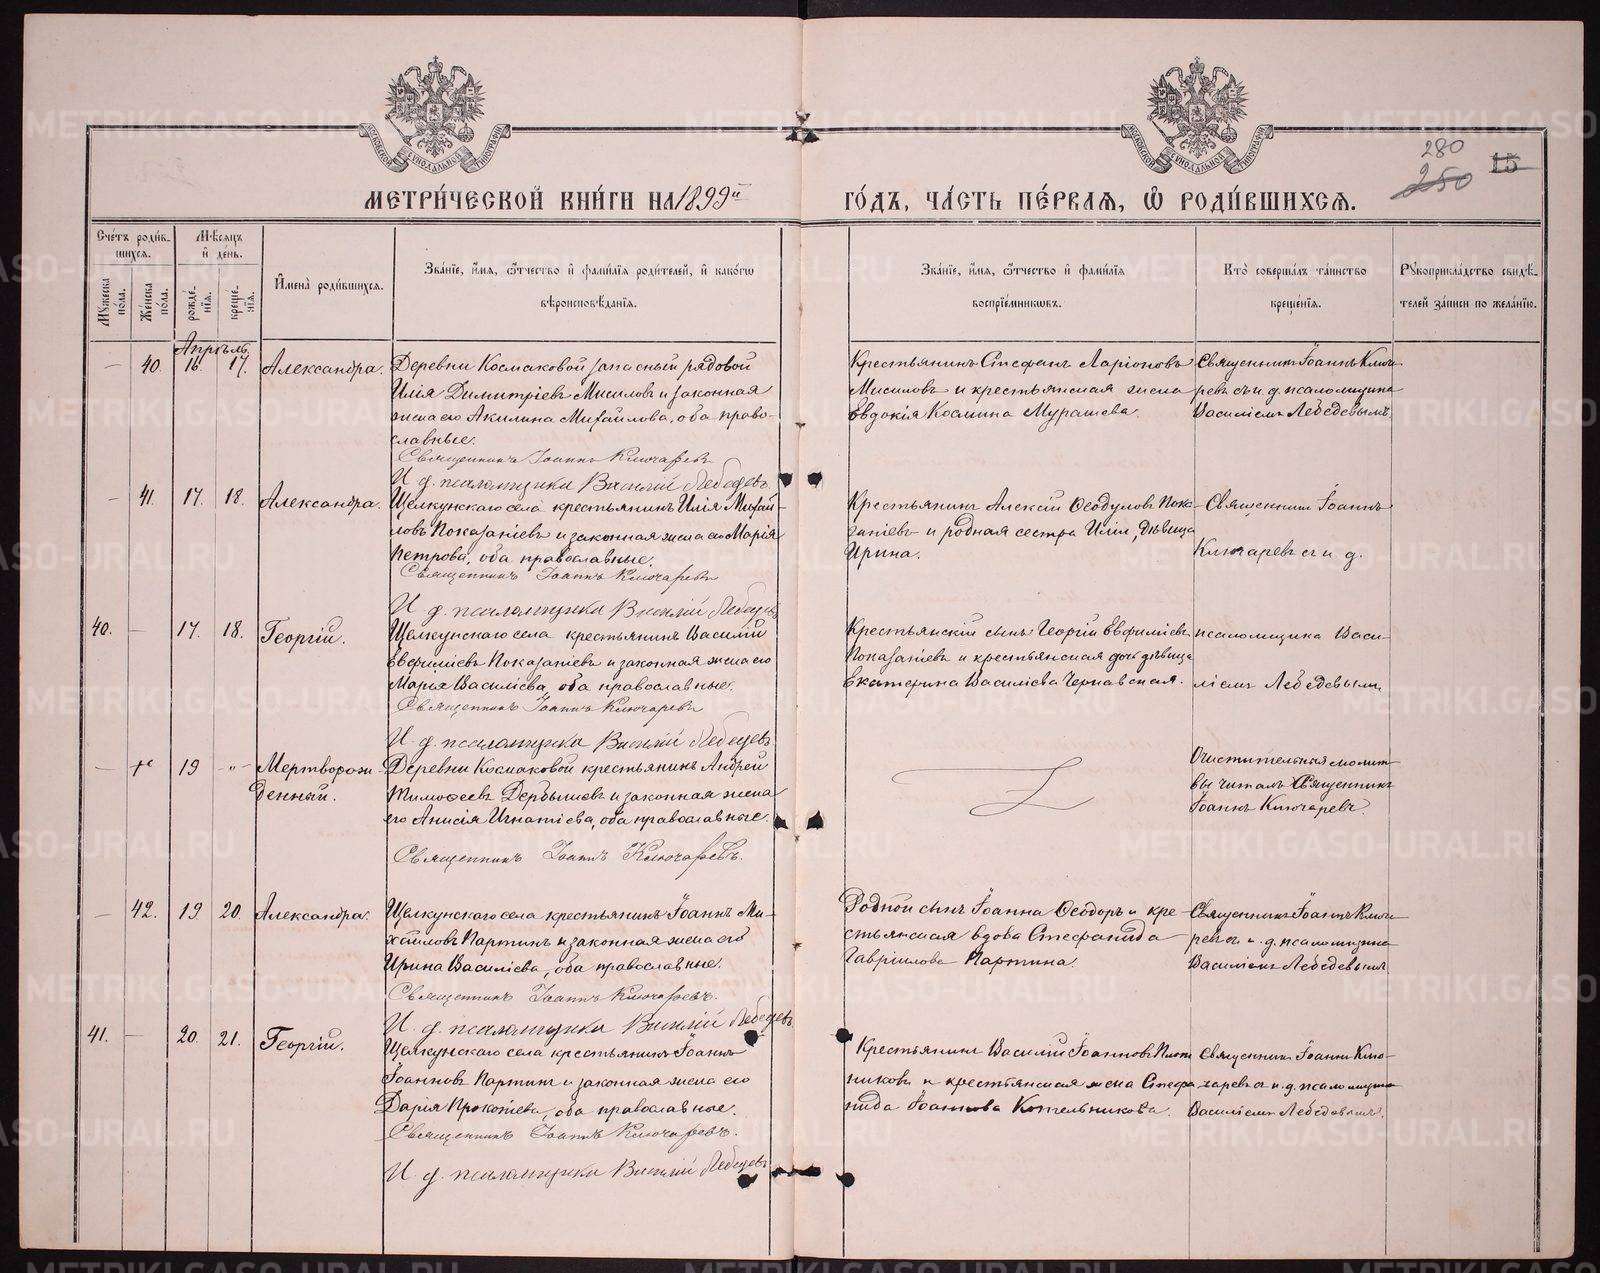 МОСКОВСКОЙ СѴНОДАЛЬНОЙ ТИПОГРАФІИ
МОСКОВСКОЙ СѴНОДАЛЬНОЙ ТИПОГРАФІИ
280
250
15
МЕТРИ́ЧЕСКОЙ КНИ́ГИ НА 1899й
ГО́ДЪ, ЧА́СТЬ ПЕ́РВАЯ, Ѡ РОДИ́ВШИХСЯ.
Сче́тъ роди́в-
шихся.
Мѣсяцъ
и де́нь.
Му́жеска по́ла.
Же́нска по́ла.
рожде́-нія.
креще́-нія.
Имена̀ роди́вшихся.
Зва́ніе, и́мя, ѻ́тчество и фами́лія роди́телей, и како́гѡ
вѣроисповѣ́данія.
Зва́ніе, и́мя, ѻ́тчество и фами́лія
воспріе́мниковъ.
Кто̀ соверша́лъ та́инство
креще́нія.
Рукоприкла́дство свидѣ́-
телей за́писи по жела́нію.
Апрѣль.
— 40. 16. 17. Александра.
Деревни Космаковой запасный рядовой
Илія Димитріевъ Мисиловъ и законная
жена его Акилина Михайлова, оба право-
славные.
Священникъ Іоаннъ Ключаревъ
И. д. псаломщика Василій Лебедевъ.
Крестьянинъ Стефанъ Ларіоновъ
Мисиловъ и крестьянская жена
Евдокія Космина Мурашева.
Священникъ Іоаннъ Ключа-
ревъ съ и. д. псаломщика
Василіемъ Лебедевымъ.
— 41. 17. 18. Александра.
Щелкунскаго села крестьянинъ Илія Михай-
ловъ Показаніевъ и законная жена его Марія
Петрова, оба православные.
Священникъ Іоаннъ Ключаревъ
И. д. псаломщика Василій Лебедевъ
Крестьянинъ Алексій Ѳеодуловъ Пока-
заніевъ и родная сестра Иліи, дѣвица
Ирина.
Священникъ Іоаннъ
Ключаревъ съ и. д.
40. — 17. 18. Георгій.
Щелкунскаго села крестьянинъ Василій
Евфиміевъ Показаніевъ и законная жена его
Марья Василіева, оба православные.
Священникъ Іоаннъ Ключаревъ
И. д. псаломщика Василій Лебедевъ.
Крестьянскій сынъ Георгій Евфиміевъ
Показаніевъ и крестьянская дочь дѣвица
Екатерина Василіева Чернавская.
псаломщика Васи-
ліемъ Лебедевымъ
— 19 -"- Мертворож-
денный.
Деревни Космаковой крестьянинъ Андрей
Тимоѳеевъ Дербышевъ и законная жена
его Анисія Игнатіева, оба православные.
Священникъ Іоаннъ Ключаревъ.
Очистительныя молит-
вы читалъ Священникъ
Іоаннъ Ключаревъ.
— 42. 19. 20. Александра.
Щелкунскаго села крестьянинъ Іоаннъ Ми-
хайловъ Партинъ и законная жена его
Ирина Василіева, оба православные.
Священникъ Іоаннъ Ключаревъ.
И. д. псаломщика Василій Лебедевъ
Родной сынъ Іоанна Ѳеодоръ и кре-
стьянская вдова Стефанида
Гавріилова Партина.
Священникъ Іоаннъ Ключа-
ревъ съ и. д. псаломщика
Василіемъ Лебедевымъ
41. — 20. 21. Георгій.
Щелкунскаго села крестьянинъ Іоаннъ
Іоанновъ Партинъ и законная жена его
Дарія Прокопіева, оба православные.
Священникъ Іоаннъ Ключаревъ.
И. д. псаломщика Василій Лебедевъ
Крестьянинъ Василій Іоанновъ Плот-
никовъ и крестьянская жена Стефа-
нида Іоаннова Котельникова.
Священникъ Іоаннъ Клю-
чаревъ съ и. д. псаломщика
Василіемъ Лебедевымъ.
METRIKI.GASO-URAL.RU